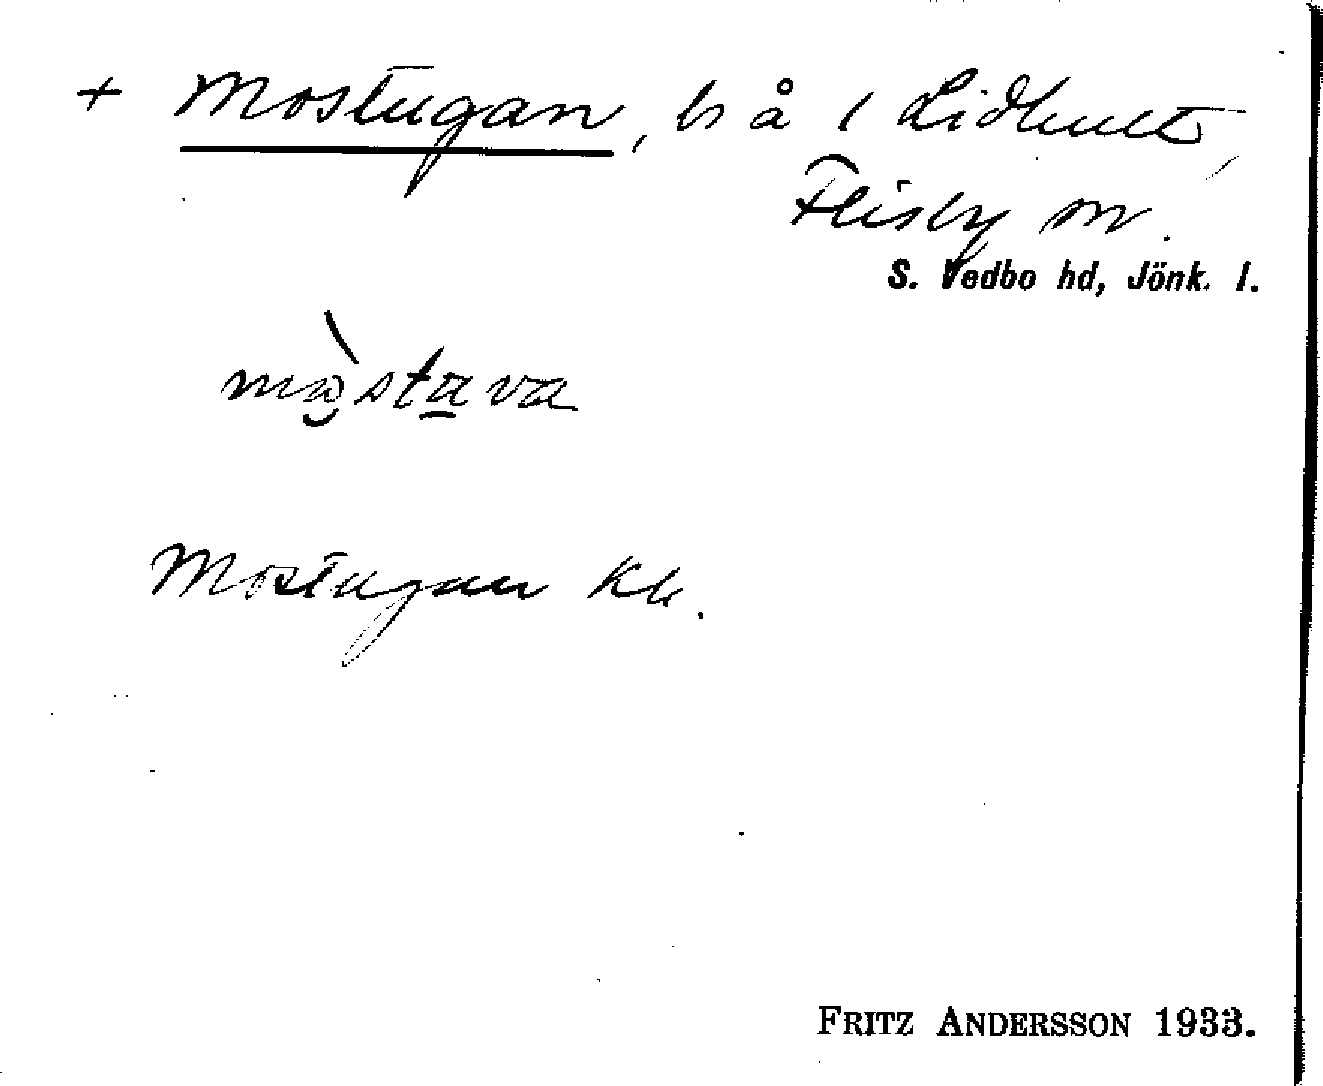 + Mostugan, bs å 1 Lidhult,
Flisby sn.
S. Vedbo hd, Jönk. l.
Mostugan Kb.
FRITZ ANDERSSON 1933.